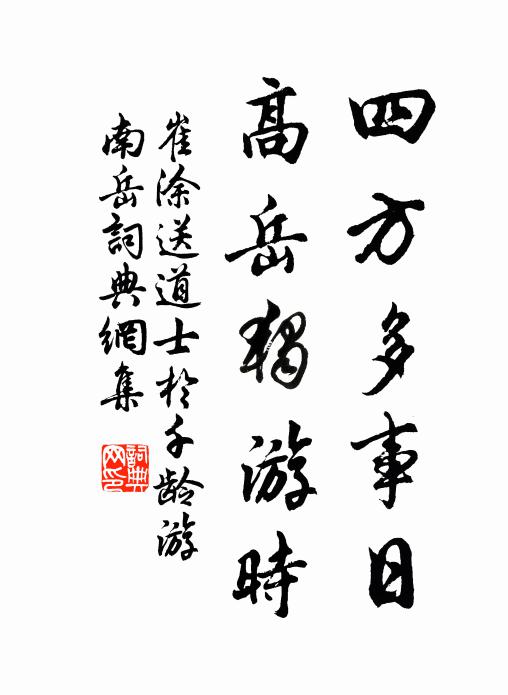 四方多事日
高岳獨游時
崔涂送道士於千龄游
南岳詞典網集
詞典
网印